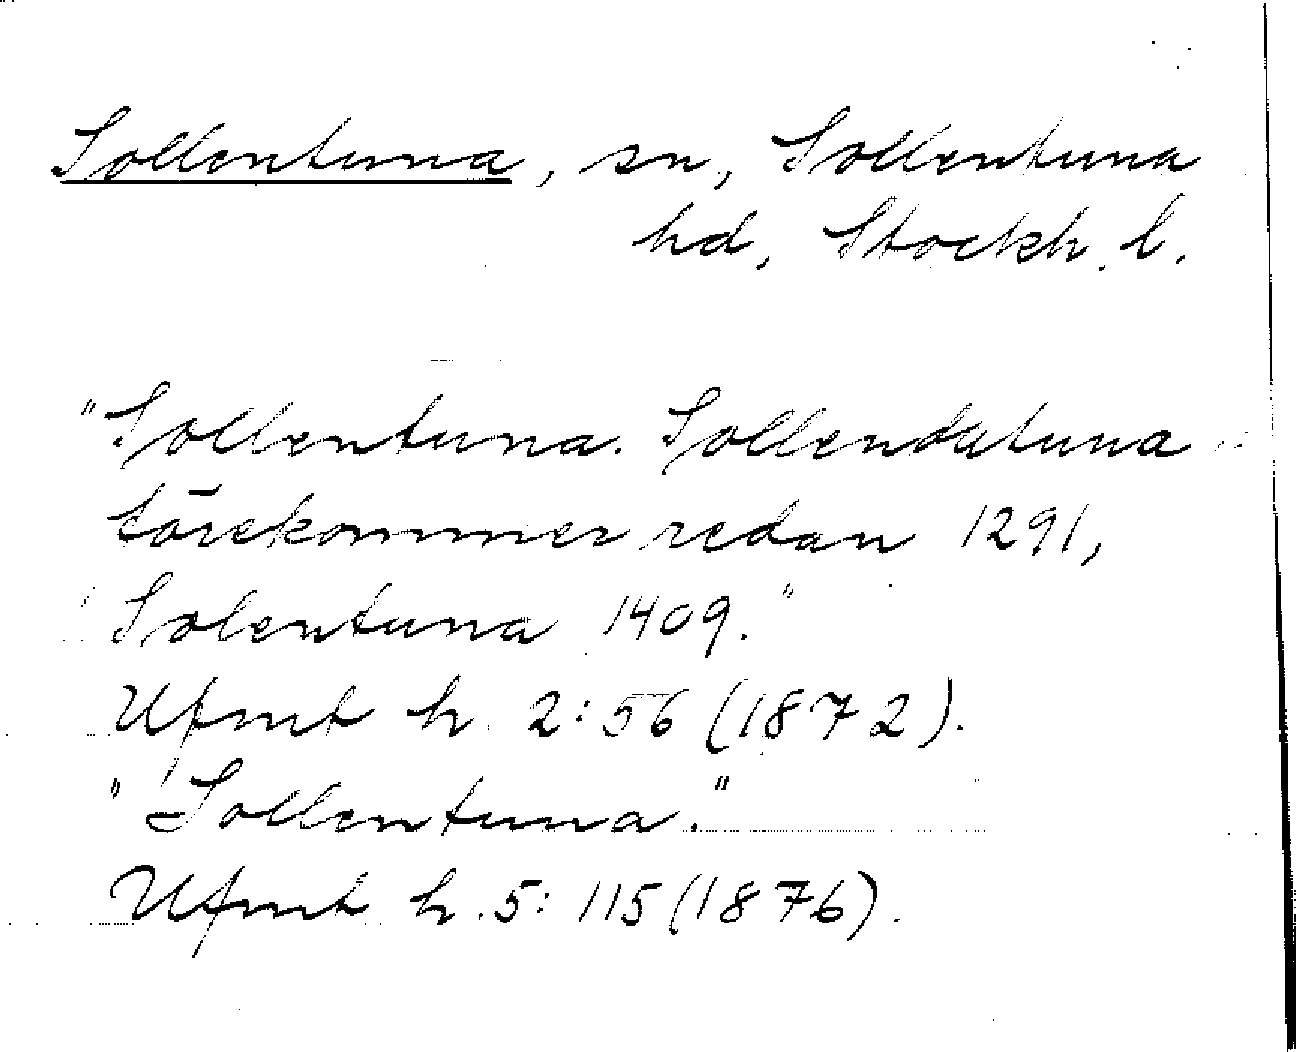 Sollentuna, sn, Sollentuna
hd, Stockh. l.
"Sollentuna. Sollendatuna
förekommer redan 1291,
Solentuna 1409."
Ufmt h. 2:56 (1872).
"Sollentuna."
Ufmt h. 5:115 (1876).